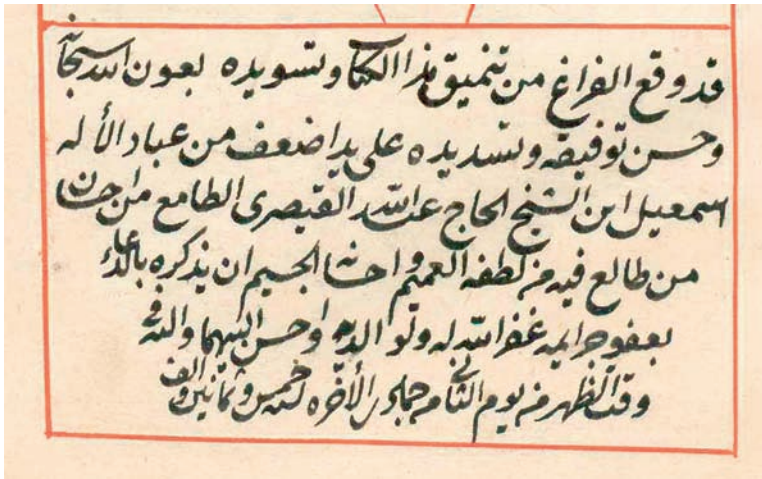 قد وقع الفراغ من تنميق هذا الكتاب وتسويده بعون الله سبحانه
وحسن توفيقه وتسديده على يد اضعف من عباد الأله
اسمعيل ابن الشيخ الحاج عبد الله القيصرى الطامع من احسان
من طالع فيه من لطفه العميم واحسانه الجسيم ان يذكره بالدعاء
بعفو جرايمه غفر الله له ولوالديه واحسن اليهما واليه فى
وقت الظهر من يوم الثانى من جمادى الأخره لسنه خمس وثمانين والف